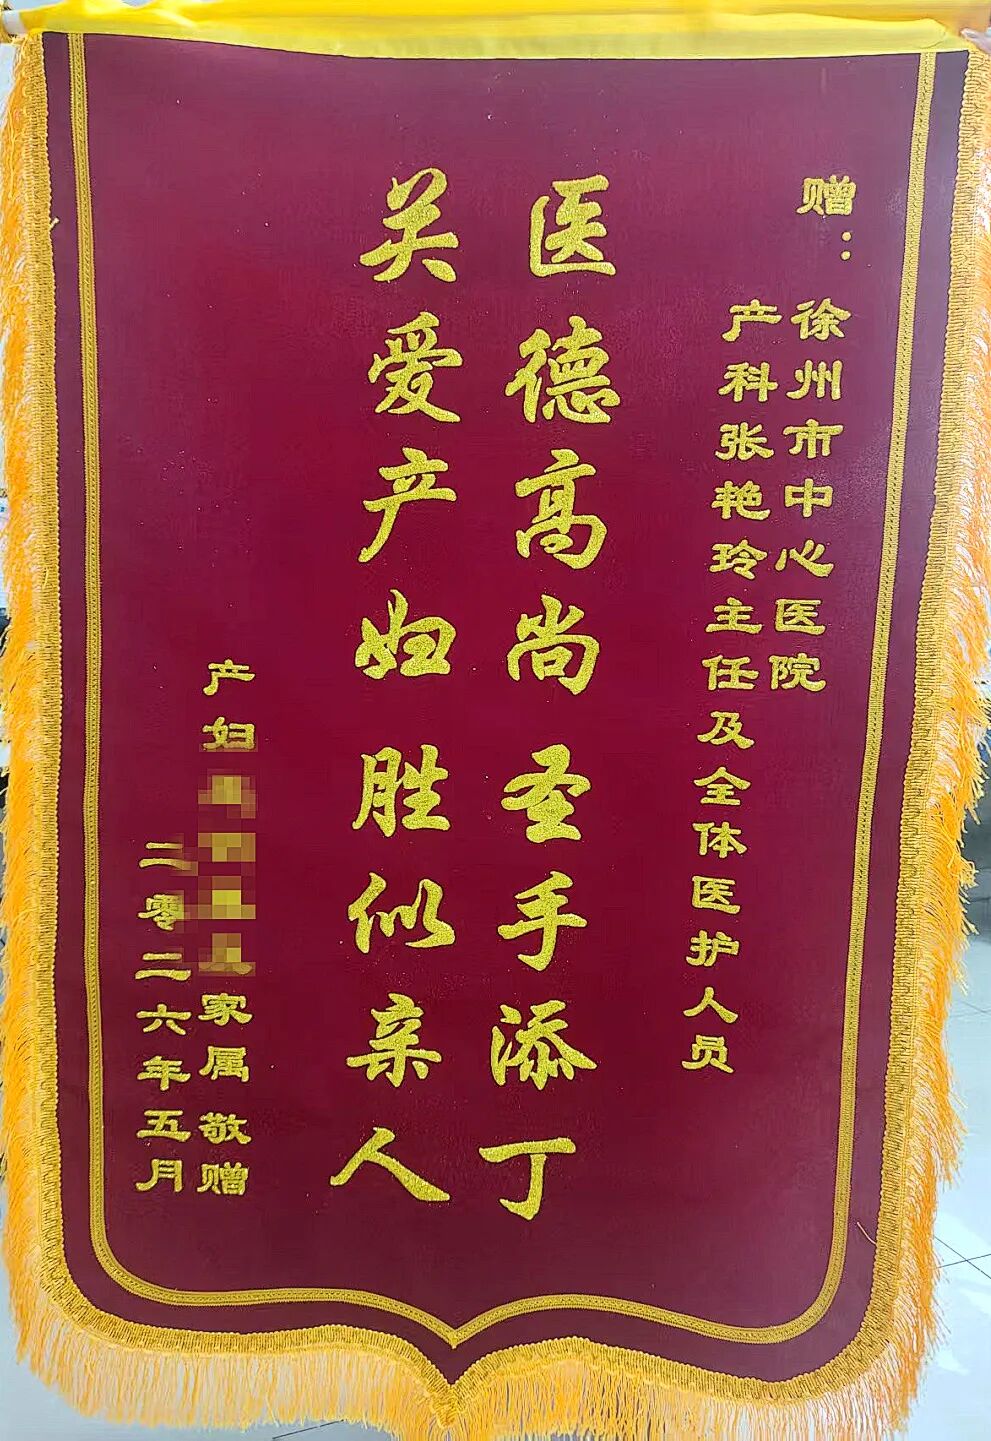 赠：
徐州市中心医院
产科张艳玲主任及全体医护人员
医德高尚圣手添丁
关爱产妇胜似亲人
产妇
家属敬赠
二零二六年五月